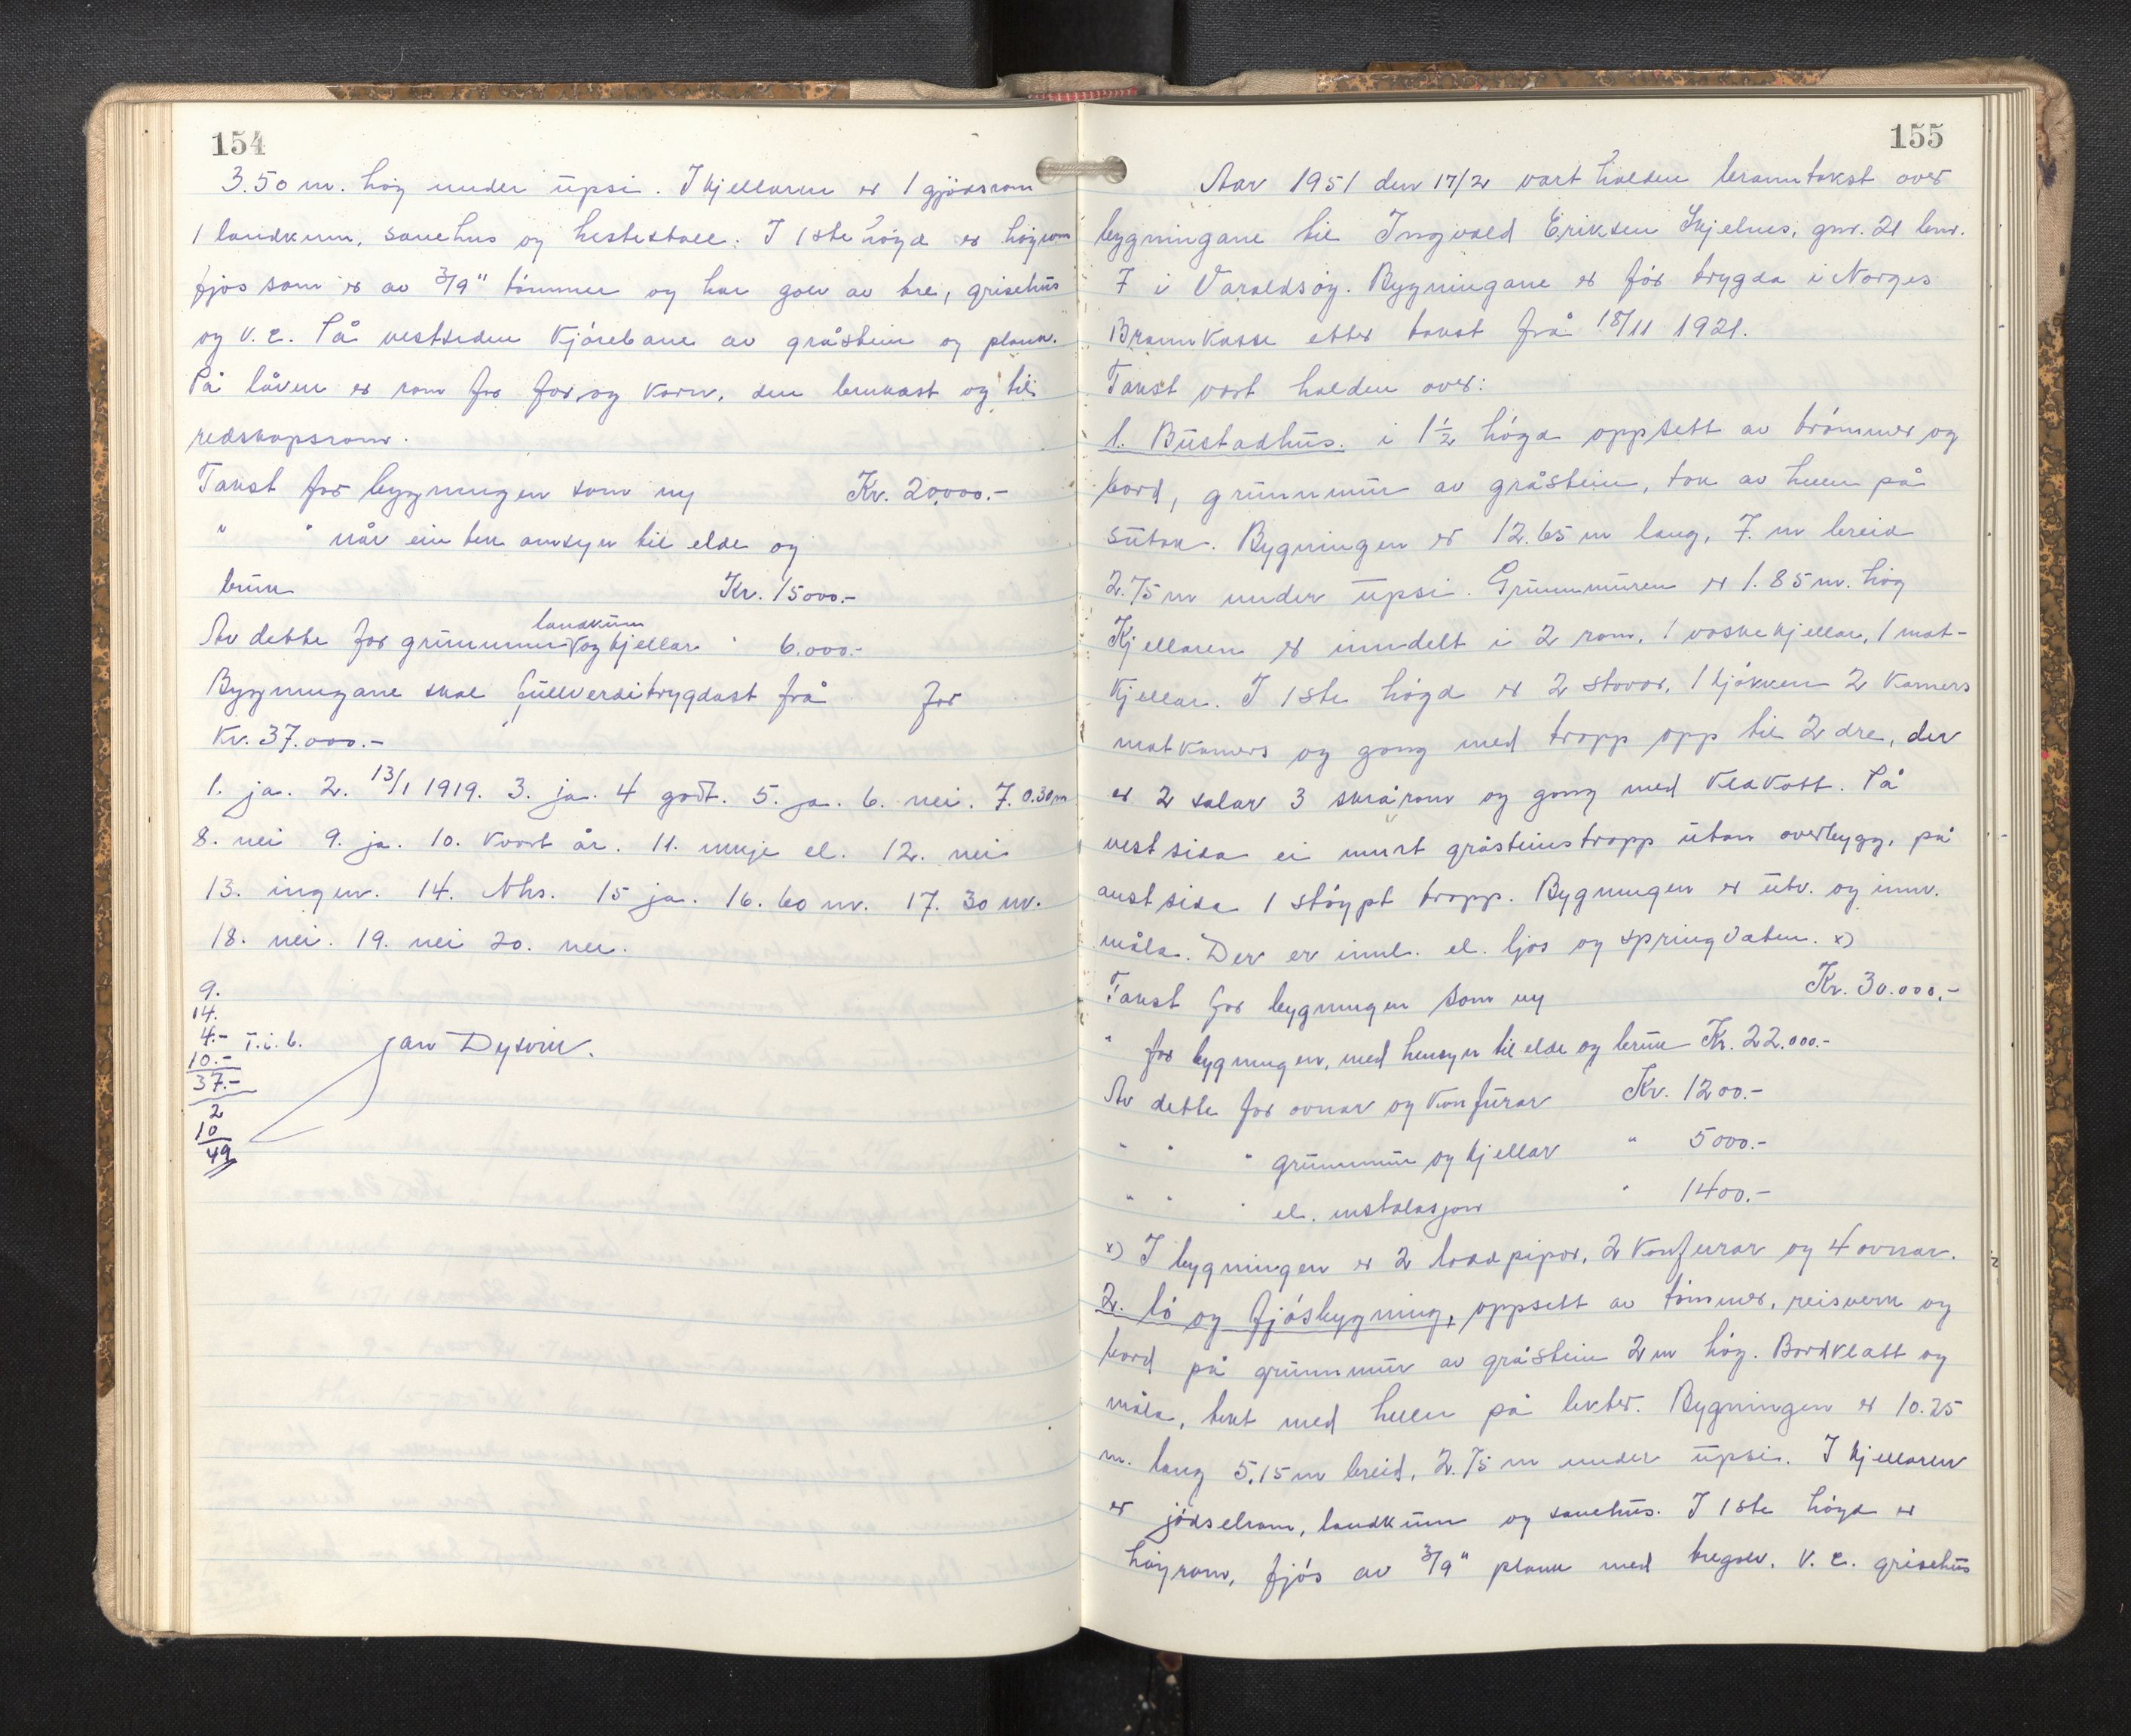 154
3.50 m. høg under üpsi. I kjellaren er 1 gjødsrom
1 landkum, sauehus og hestestall. I 1ste høgd er høyrom
fjøs som er av 3/9" tømmer og har golv av tre, grisehüs
og v. c. På vestsiden kjørebane av gråstein og plank.
På låven er rom for for og korn, den brukast og til
redskapsrom.
Takst for bygningen som ny Kr. 20,000.-
" " når ein tek omsyn til elde og
brük Kr. 15000.-
landküm
Av dette for grünnmur og kjellar " 6.000.-
Bygningane skal füllverditrygdast frå for
Kr. 37.000.-
1. ja. 2. 13/1 1919. 3. ja. 4 godt. 5. ja. 6. nei. 7. 0.30m
8. nei 9. ja. 10. kvart år. 11. muje el. 12. nei
13. ingen. 14. Nhs. 15 ja. 16. 60 m. 17. 30 m.
18. nei. 19. nei 20. nei.
9.
14.
4.- T.i.b. Jan Dysvik.
10.-
37.-
2
10
49
155
Aar 1951 den 17/2 vart halden branntakst over
bygningane til Ingvald Eriksen Skjelnes, gnr. 21 bnr.
7 i Varaldsøy. Bygningane er før trygda i Norges
Brannkasse etter takst frå 18/11 1921.
Takst vart halden over:
1. Büstadhüs. i 1½ høgd oppsett av trømmer og
bord, grünnmür av gråstein, tak av heller på
sütak. Bygningen er 12.65 m lang, 7. m breid
2.75 m under üpsi. Grünnmüren er 1.85 m. høg
Kjellaren er inndelt i 2 rom, 1 vaskekjellar, 1 mat-
kjellar. I 1ste høgd er 2 stovor, 1 kjøkken 2 kamers
matkamers og gang med tropp opp til 2 dre, der
er 2 salar 3 skrårom og gang med kleskott. På
vestsida ei murt gråsteinstropp ütan overbygg, på
austsida 1 støypt tropp. Bygningen er ütv. og innv.
måla. Der er innl. el. ljos og springvaten. x)
Takst for bygningen som ny Kr. 30.000.-
" for bygningen, med hensyn til elde og brük Kr. 22.000.-
Av dette for ovnar og komfürar Kr. 1200.-
" " " grünnmür og kjellar " 5000.-
" " " el. instalasjon " 1400.-
x) I bygningen er 2 loddpipor, 2 komfurar og 4 ovnar.
2. Lø og fjøsbygning, oppsett av tømmer, reisverk og
bord på grünnmür av gråstein 2 m høg. Bordkledt og
måla, tekt med heller på lekter. Bygningen er 10.25
m. lang 5.15 m breid, 2.75 m under üpsi. I kjellaren
er jødselrom, landküm og sauehüs. I 1ste høgd er
høyrom, fjøs av 3/9" plank med tregolv, v. c. grisehüs